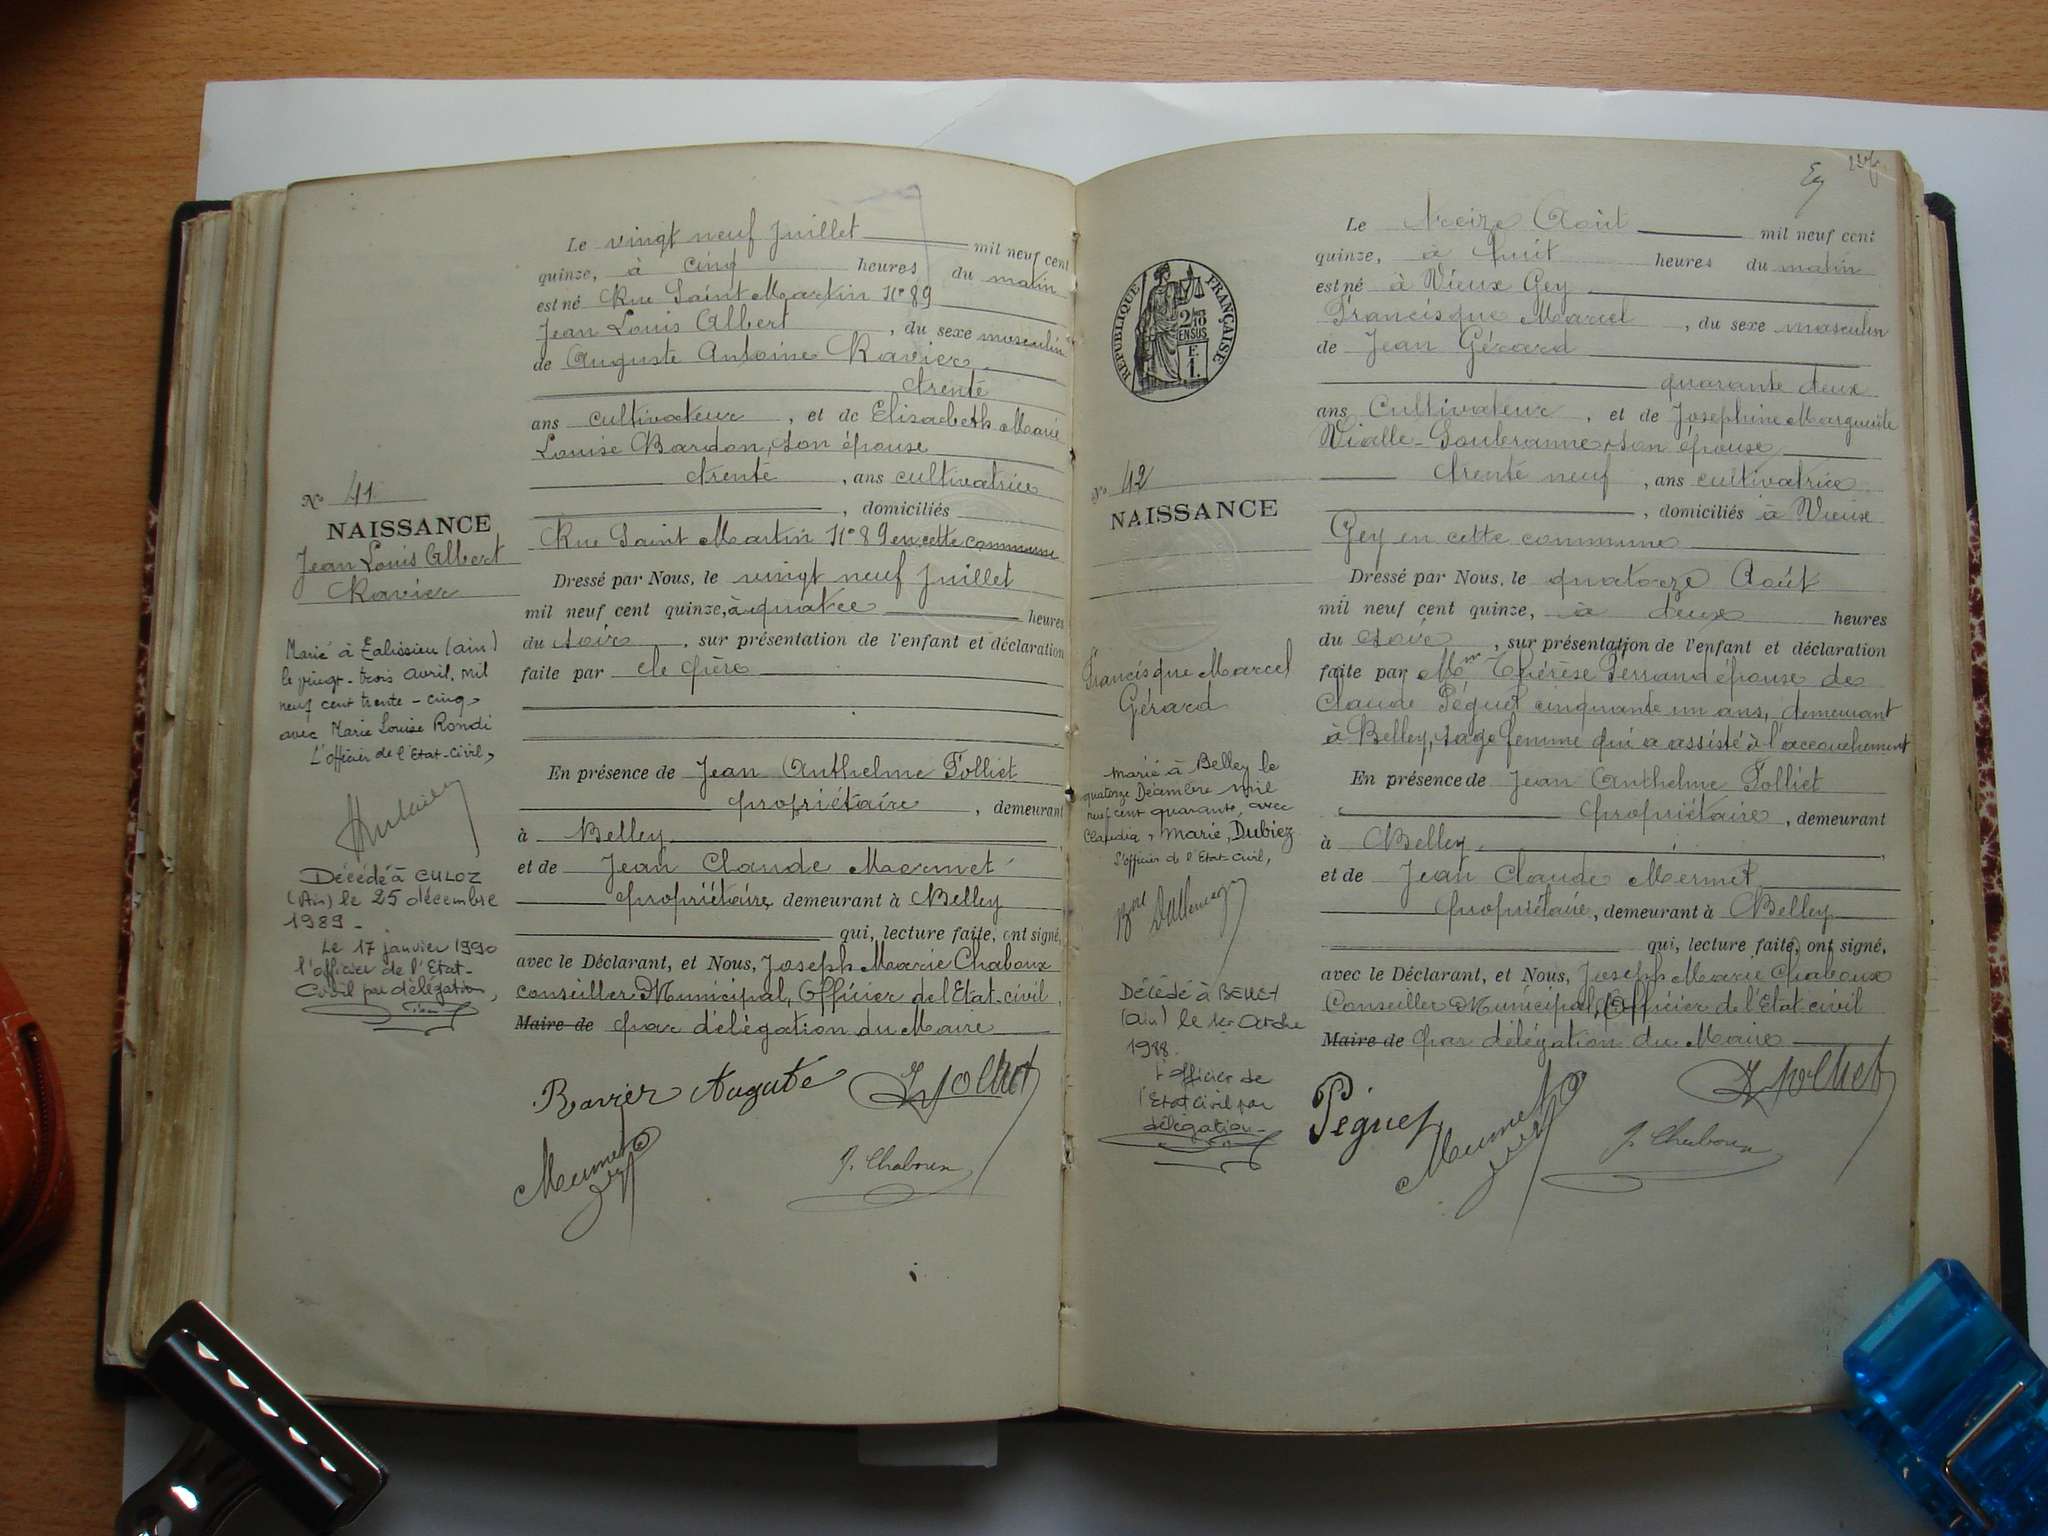 Le vingt neuf juillet mil neuf cent
quinze, à cinq heures du matin
est né Rue Saint Martin N° 89
Jean Louis Albert, du sexe masculin
de Auguste Antoine Ravier
trente
ans cultivateur, et de Elisabeth Marie
Louise Bardon, son épouse
trente, ans cultivatrice
, domiciliés
Rue Saint Martin N° 89 en cette commune
Dressé par Nous, le vingt neuf Juillet
mil neuf cent quinze, à quatre heures
du soir, sur présentation de l'enfant et déclaration
faite par le père
En présence de Jean Anthelme Folliet
propriétaire, demeurant
à Belley,
et de Jean Claude Mermet
propriétaire, demeurant à Belley
qui, lecture faite, ont signé,
avec le Déclarant, et Nous, Joseph Marie Chaboux
Conseiller Municipal, Officier de l'Etat-civil
Maire de par délégation du Maire
Ravier Auguste
Folliet
Mermet
J. Chaboux
N° 41
NAISSANCE
Jean Louis Albert
Ravier
Marié à Talissieu (ain)
le vingt-trois avril, mil
neuf cent trente-cinq,
avec Marie Louise Rondi
L'officier de l'Etat-Civil,
Décédé à CULOZ
(Ain) le 25 décembre
1989-
Le 17 janvier 1990
l'officier de l'Etat-
Civil par délégation,
Le treize Août mil neuf cent
quinze, à huit heures du matin
est né à Vieux Gey
Francisque Marcel, du sexe masculin
de Jean Gérard
quarante deux
ans Cultivateur, et de Josephine Marguerite
Vialle-Soubranne, son épouse
trente neuf, ans cultivatrice
, domiciliés à Vieux
Gey en cette commune
Dressé par Nous, le quatorze Août
mil neuf cent quinze, à deux heures
du soir, sur présentation de l'enfant et déclaration
faite par Mme Thérèse Perrand épouse de
Claude Péguet cinquante un ans, demeurant
à Belley, sage femme qui a assisté à l'accouchement
En présence de Jean Anthelme Folliet
propriétaire, demeurant
à Belley,
et de Jean Claude Mermet
propriétaire, demeurant à Belley
qui, lecture faite, ont signé,
avec le Déclarant, et Nous, Joseph Marie Chaboux
Conseiller Municipal, Officier de l'Etat-civil
Maire de par délégation du Maire
Péguet
Mermet
Folliet
J. Chaboux
RÉPUBLIQUE FRANÇAISE
2/10
EN SUS
F.
1.
N° 42
NAISSANCE
Francisque Marcel
Gérard
Marié à Belley le
quatorze Décembre mil
neuf cent quarante, avec
Claudia, Marie, Dubiez
L'officier de l'Etat-Civil,
Décédé à BELLEY
(Ain) le 1er Octobre
1988.
l'officier de
l'Etat Civil par
délégation-